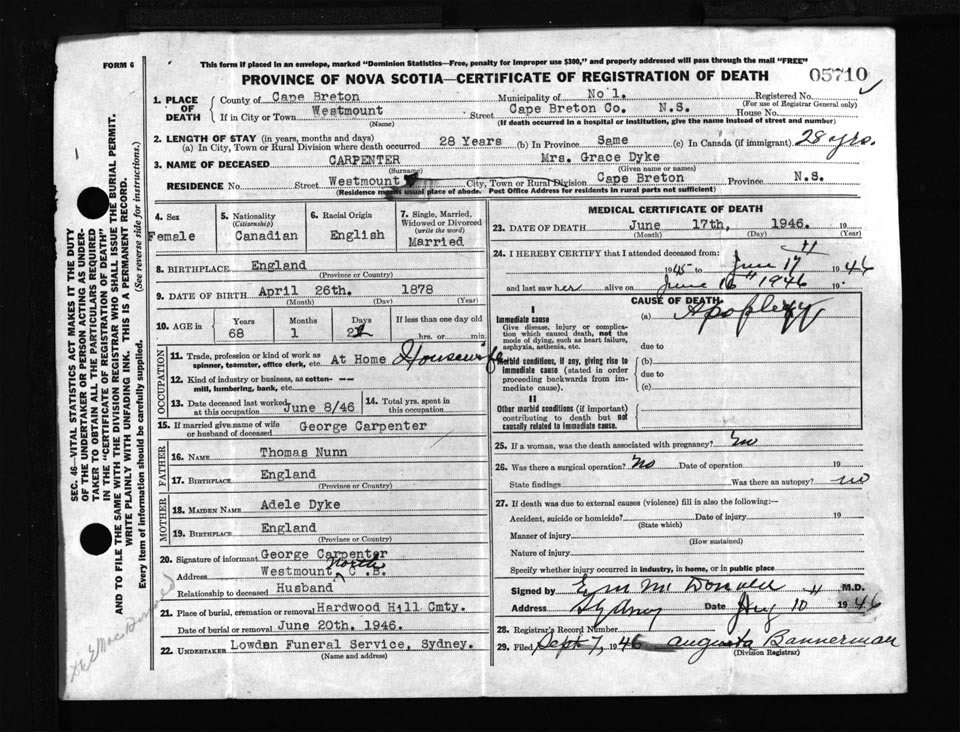 FORM 6
This form if placed in an envelope, marked "Dominion Statistics—Free, penalty for improper use $300," and properly addressed will pass through the mail "FREE"
PROVINCE OF NOVA SCOTIA—CERTIFICATE OF REGISTRATION OF DEATH
05710
1. PLACE OF DEATH
County of Cape Breton Municipality of No 1. Registered No.
(For use of Registrar General only)
If in City or Town Westmount Street Cape Breton Co. N.S. House No.
(Name) (If death occurred in a hospital or institution, give the name instead of street and number)
2. LENGTH OF STAY (in years, months and days)
(a) In City, Town or Rural Division where death occurred 28 Years (b) In Province Same (c) In Canada (if immigrant) 28 yrs.
3. NAME OF DECEASED CARPENTER Mrs. Grace Dyke
(Surname) (Given name or names)
RESIDENCE No. Street Westmount City, Town or Rural Division Cape Breton Province N.S.
(Residence means usual place of abode. Post Office Address for residents in rural parts not sufficient)
4. Sex
Female
5. Nationality
(Citizenship)
Canadian
6. Racial Origin
English
7. Single, Married, Widowed or Divorced
(write the word)
Married
8. BIRTHPLACE England
(Province or Country)
9. DATE OF BIRTH April 26th. 1878
(Month) (Day) (Year)
10. AGE in
Years Months Days If less than one day old
68 1 hrs. or min.
OCCUPATION
11. Trade, profession or kind of work as spinner, teamster, office clerk, etc. At Home Housewife
12. Kind of industry or business, as cotton-mill, lumbering, bank, etc. --
13. Date deceased last worked at this occupation June 8/46
14. Total yrs. spent in this occupation
15. If married give name of wife or husband of deceased George Carpenter
FATHER
16. NAME Thomas Nunn
17. BIRTHPLACE England
(Province or Country)
MOTHER
18. MAIDEN NAME Adele Dyke
19. BIRTHPLACE England
(Province or Country)
20. Signature of informant George Carpenter
Address Westmount North C.B.
Relationship to deceased Husband
21. Place of burial, cremation or removal Hardwood Hill Cmty.
Date of burial or removal June 20th. 1946.
22. UNDERTAKER Lowden Funeral Service, Sydney.
(Name and address)
MEDICAL CERTIFICATE OF DEATH
23. DATE OF DEATH June 17th, 1946. 19
(Month) (Day) (Year)
24. I HEREBY CERTIFY that I attended deceased from:
1945 to June 17 1946
and last saw her alive on June 16" 1946 19
CAUSE OF DEATH
I
Immediate cause
Give disease, injury or complication which caused death, not the mode of dying, such as heart failure, asphyxia, asthenia, etc.
(a) Apoplexy
due to
Morbid conditions, if any, giving rise to immediate cause (stated in order proceeding backwards from immediate cause).
(b)
due to
(c)
II
Other morbid conditions (if important) contributing to death but not causally related to immediate cause.
25. If a woman, was the death associated with pregnancy? no
26. Was there a surgical operation? No Date of operation 19
State findings Was there an autopsy? no
27. If death was due to external causes (violence) fill in also the following:—
Accident, suicide or homicide? Date of injury 19
(State which)
Manner of injury
(How sustained)
Nature of injury
Specify whether injury occurred in industry, in home, or in public place
Signed by E. M. McDonald M.D.
Address Sydney Date 10 1946
28. Registrar's Record Number
29. Filed Sept 7, 1946 Augusta Bannerman
(Division Registrar)
SEC. 46—VITAL STATISTICS ACT MAKES IT THE DUTY
OF THE UNDERTAKER OR PERSON ACTING AS UNDER-
TAKER TO OBTAIN ALL THE PARTICULARS REQUIRED
IN THE "CERTIFICATE OF REGISTRATION OF DEATH"
AND TO FILE THE SAME WITH THE DIVISION REGISTRAR WHO SHALL ISSUE THE BURIAL PERMIT.
WRITE PLAINLY WITH UNFADING INK. THIS IS A PERMANENT RECORD.
Every item of information should be carefully supplied. (See reverse side for instructions.)